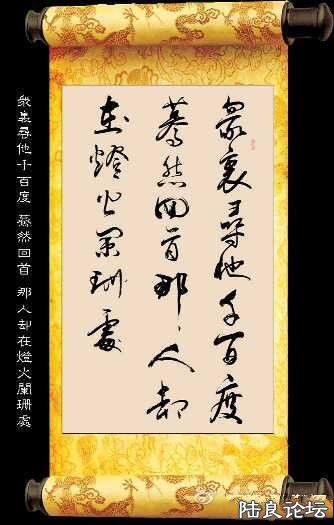 衆裏尋他千百度
驀然回首那人却
在燈火闌珊處
衆裏尋他千百度 驀然回首 那人却在燈火闌珊處
陆良论坛